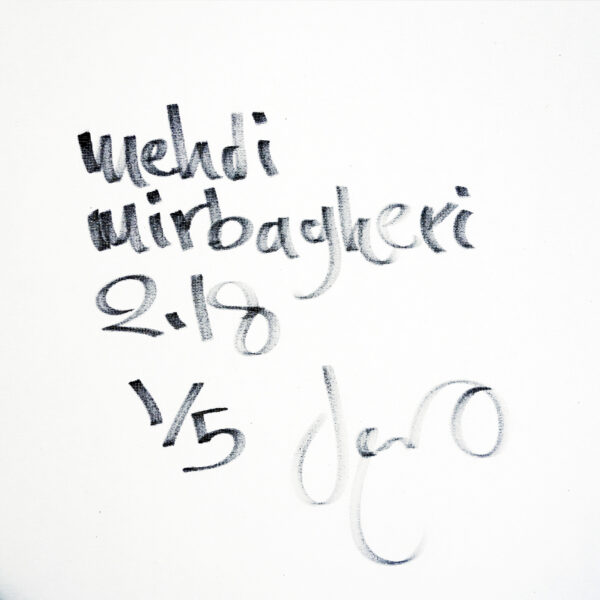 mehdi
mirbagheri
2.18
1/5